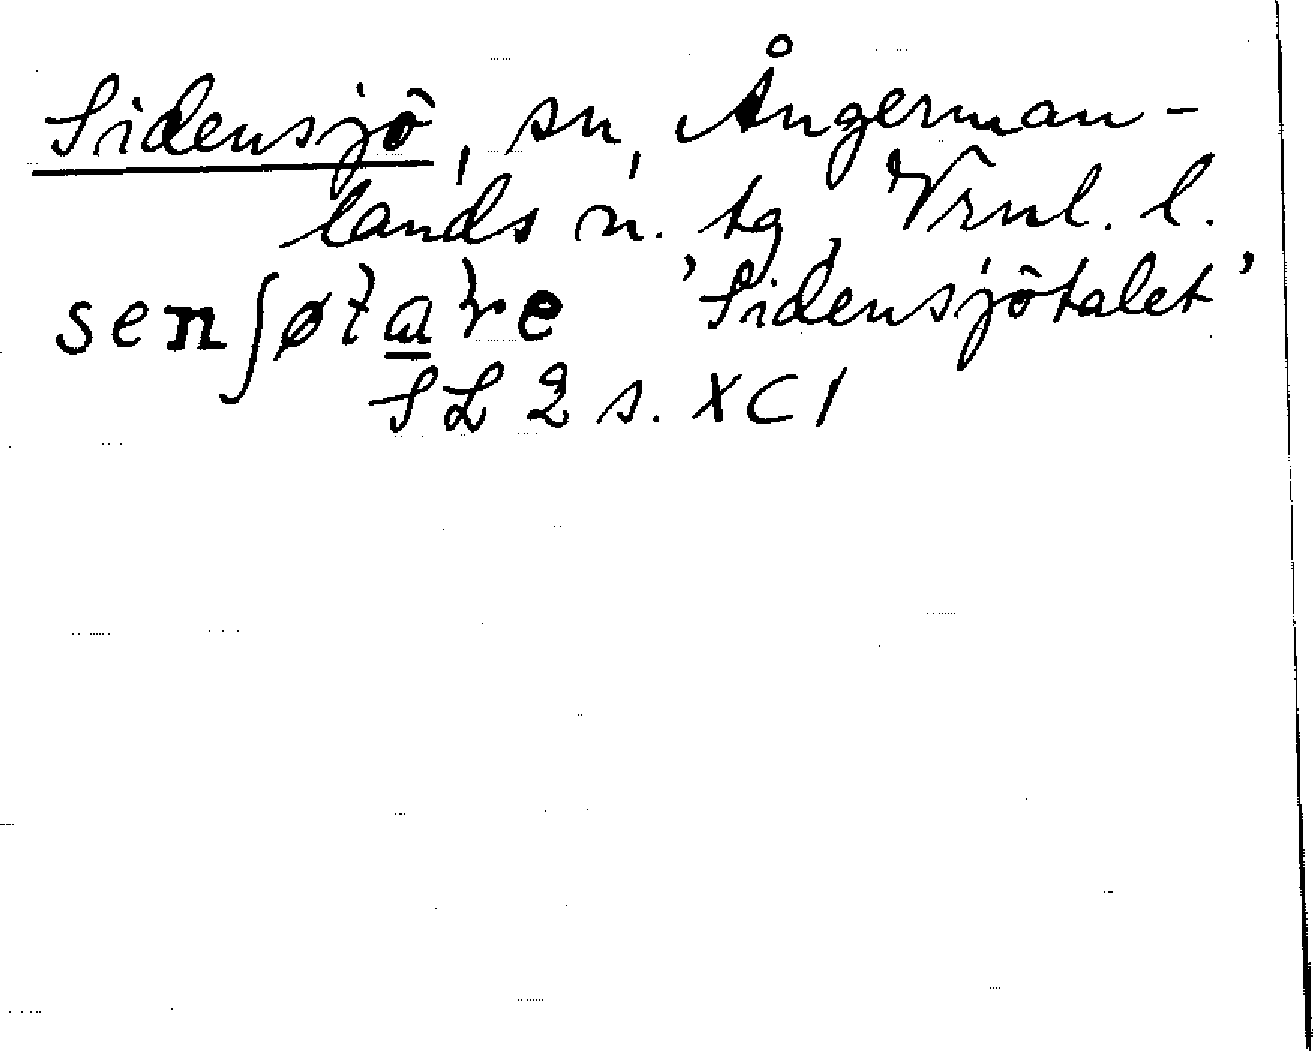 Sidensjö, sn, Ångerman-
lands n. tg, Vrnl. l.
'Sidensjötalet'
SL 2 s. XCI